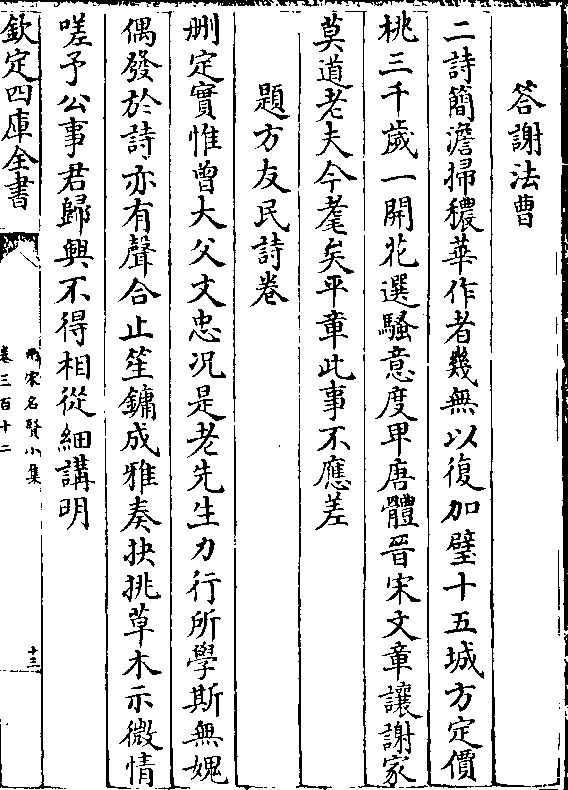 答謝法曹
二詩簡澹掃穠華作者幾無以復加璧十五城方定價
桃三千歲一開花選騷意度卑唐體晉宋文章讓謝家
莫道老夫今耄矣平章此事不應差
題方友民詩卷
刪定實惟曾大父文忠况是老先生力行所學斯無媿
偶發於詩亦有聲合止笙鏞成雅奏抉挑草木示微情
嗟予公事君歸興不得相從細講明
欽定四庫全書
兩宋名賢小集
卷三百十二
十三